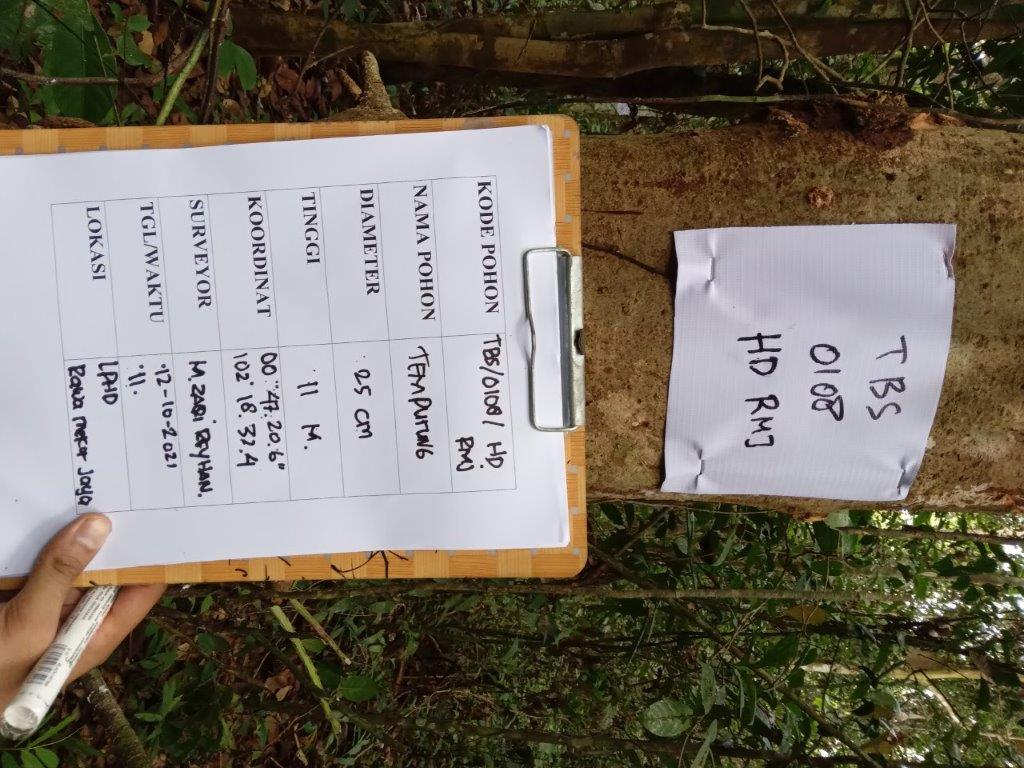 TBS
0108
HD RMJ
KODE POHON TBS/0108/ HD
RMJ
NAMA POHON TEMPURUNG
DIAMETER 25 cm
TINGGI 11 M.
KOORDINAT 00°47.20.6"
102° 18.32.4
SURVEYOR M. ZAQI REYHAN.
TGL/WAKTU 12-10-2021
11.
LOKASI LPHD
Rawa mekar Jaya